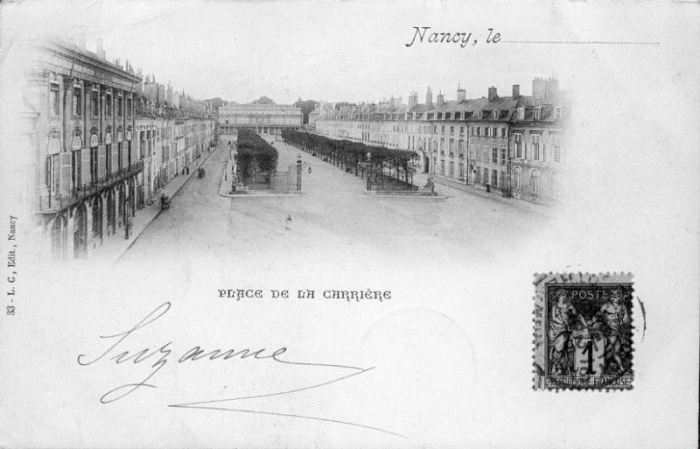 Nancy, le
33 - L. C, Edit., Nancy
PLACE DE LA CARRIÈRE
Suzanne
POSTES
1
REPUBLIQUE FRANÇAISE